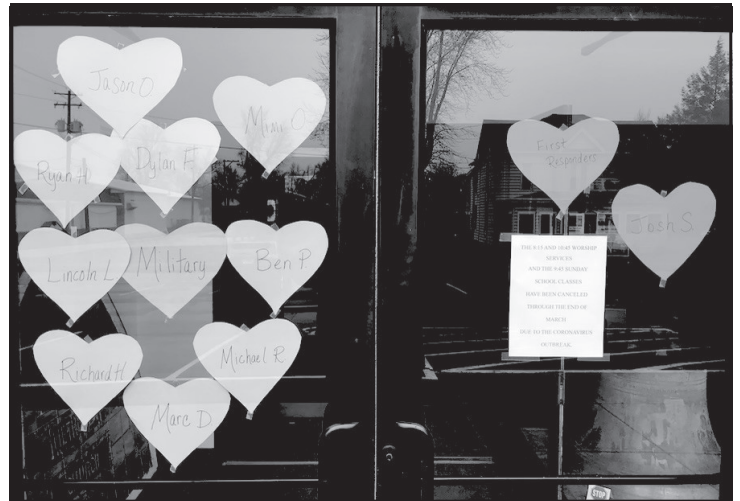 Jason O.
Mimi O.
Ryan H.
Dylan F.
Lincoln L
Military
Ben P
Richard H
Michael R
Marc D.
First
Responders
Josh S.
THE 8:15 AND 10:45 WORSHIP
SERVICES
AND THE 9:45 SUNDAY
SCHOOL CLASSES
HAVE BEEN CANCELED
THROUGH THE END OF
MARCH
DUE TO THE CORONAVIRUS
OUTBREAK.
STOP